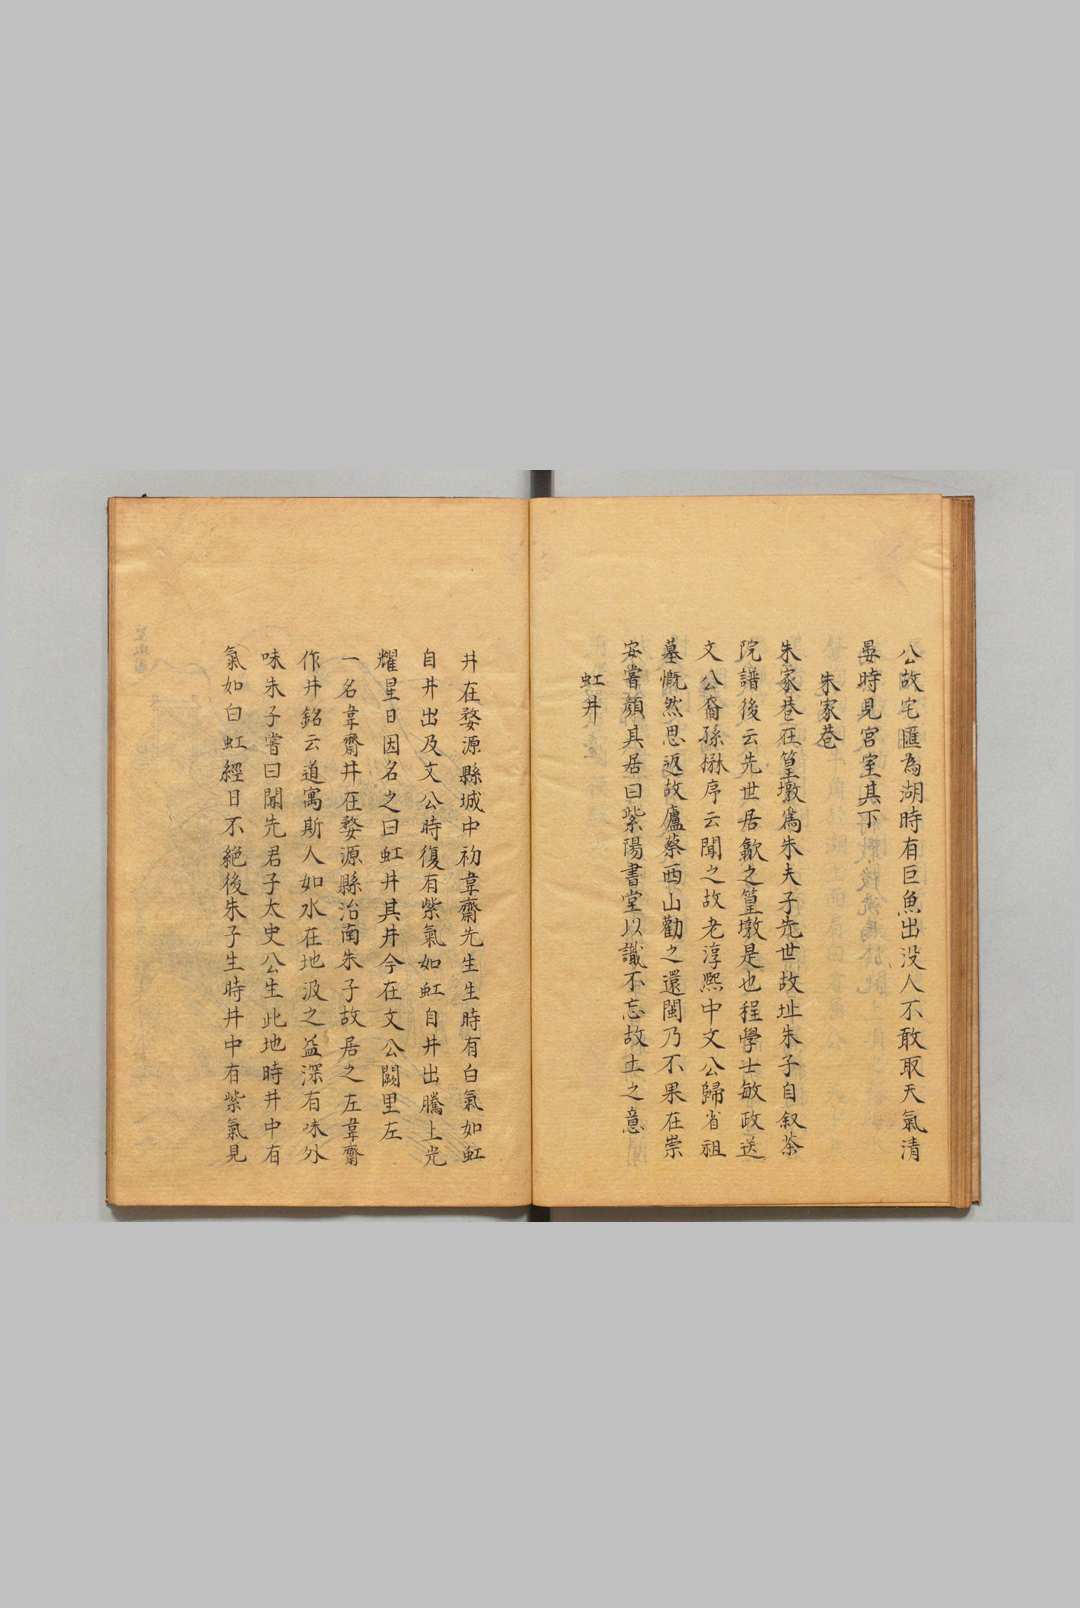 公故宅匯為湖時有巨魚出没人不敢取天氣清
晏時見宮室其下
朱家巷
朱家巷在篁墩爲朱夫子先世故址朱子自叙茶
院譜後云先世居歙之篁墩是也程學士敏政送
文公裔孫楙序云聞之故老淳熙中文公歸省祖
墓慨然思返故廬蔡西山勸之還閩乃不果在崇
安嘗顏其居曰紫陽書堂以識不忘故土之意
虹井
井在婺源縣城中初韋齋先生生時有白氣如虹
自井出及文公時復有紫氣如虹自井出騰上光
耀星日因名之曰虹井其井今在文公闕里左
一名韋齋井在婺源縣治南朱子故居之左韋齋
作井銘云道寓斯人如水在地汲之益深有味外
味朱子嘗曰聞先君子太史公生此地時井中有
氣如白虹經日不絕後朱子生時井中有紫氣見